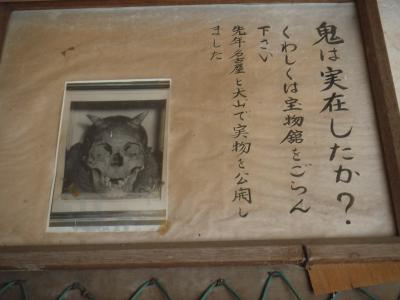 鬼は実在したか？
くわしくは宝物館をごらん
下さい
先年名古屋と犬山で実物を公開し
ました